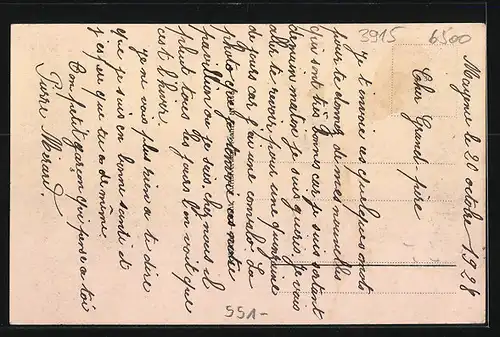 3915
6500
Mayenne le 20 octobre 1928
Cher Grand-père
Je t'envoie ces quelques mots
pour te donner de mes nouvelles
qui sont très bonnes car je suis sortant
demain matin je suis guéris je vais
aller te revoir pour une quinzaine
de jours car j'ai une convalo. La
photo que je t'envoie c'est notre
pavillion ou je suis. Chez nous il
pleut tous les jours l'on voit que
c'est l'hiver.
Je ne vois plus rien a te dire
que je suis en bonne santé et
j'espère que tu a de même.
Ton petit garçon qui pense a toi
Pierre
551-